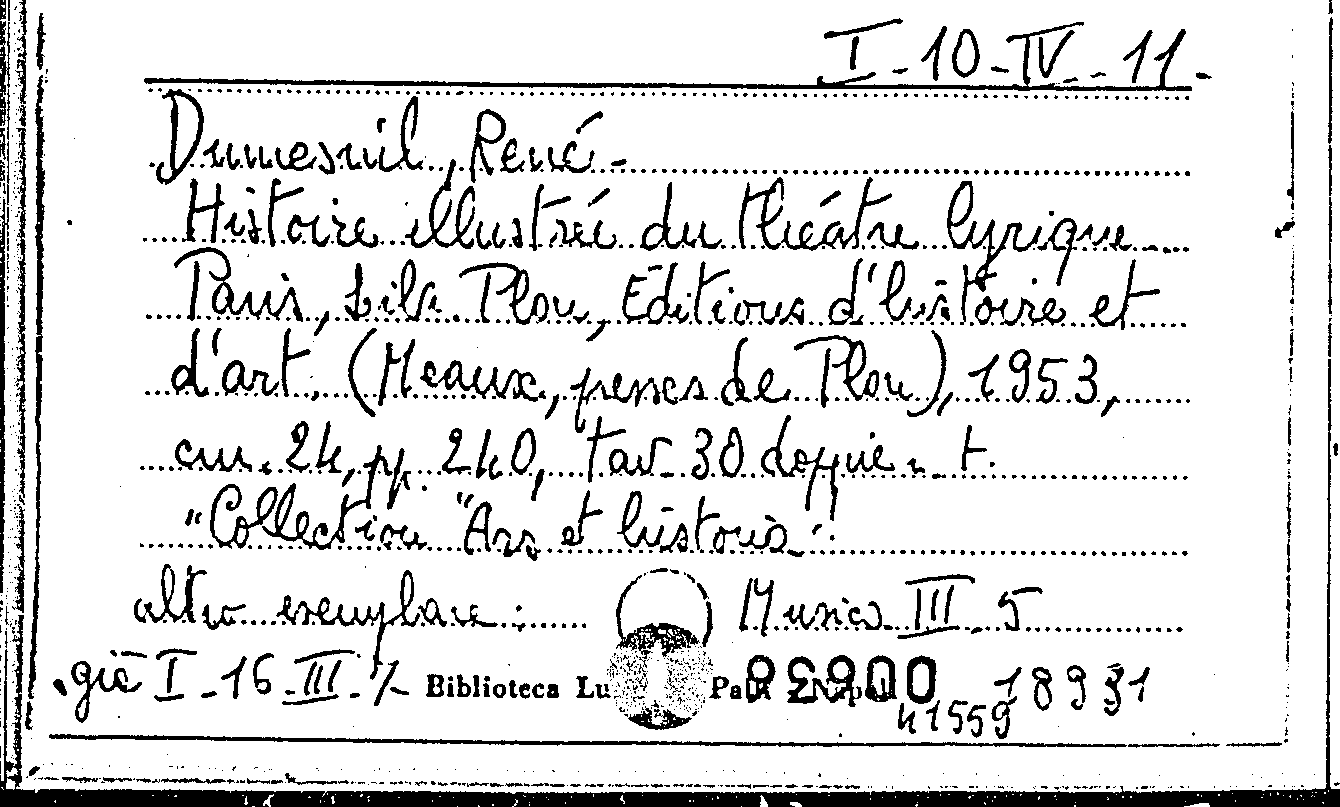 I-10-IV-11-
Dumesnil, René-
Histoire illustrée du théâtre lyrique
Paris, Libr. Plon, Editions d'histoire et
d'art. (Meaux, presses de Plon), 1953,
cm. 24, pp. 240, tav. 30 doppie n. t.
"Collection "Ars et historia".
altro esemplare: Musica III 5
già I-16-III-7 Biblioteca Lu 00632 18931
41559